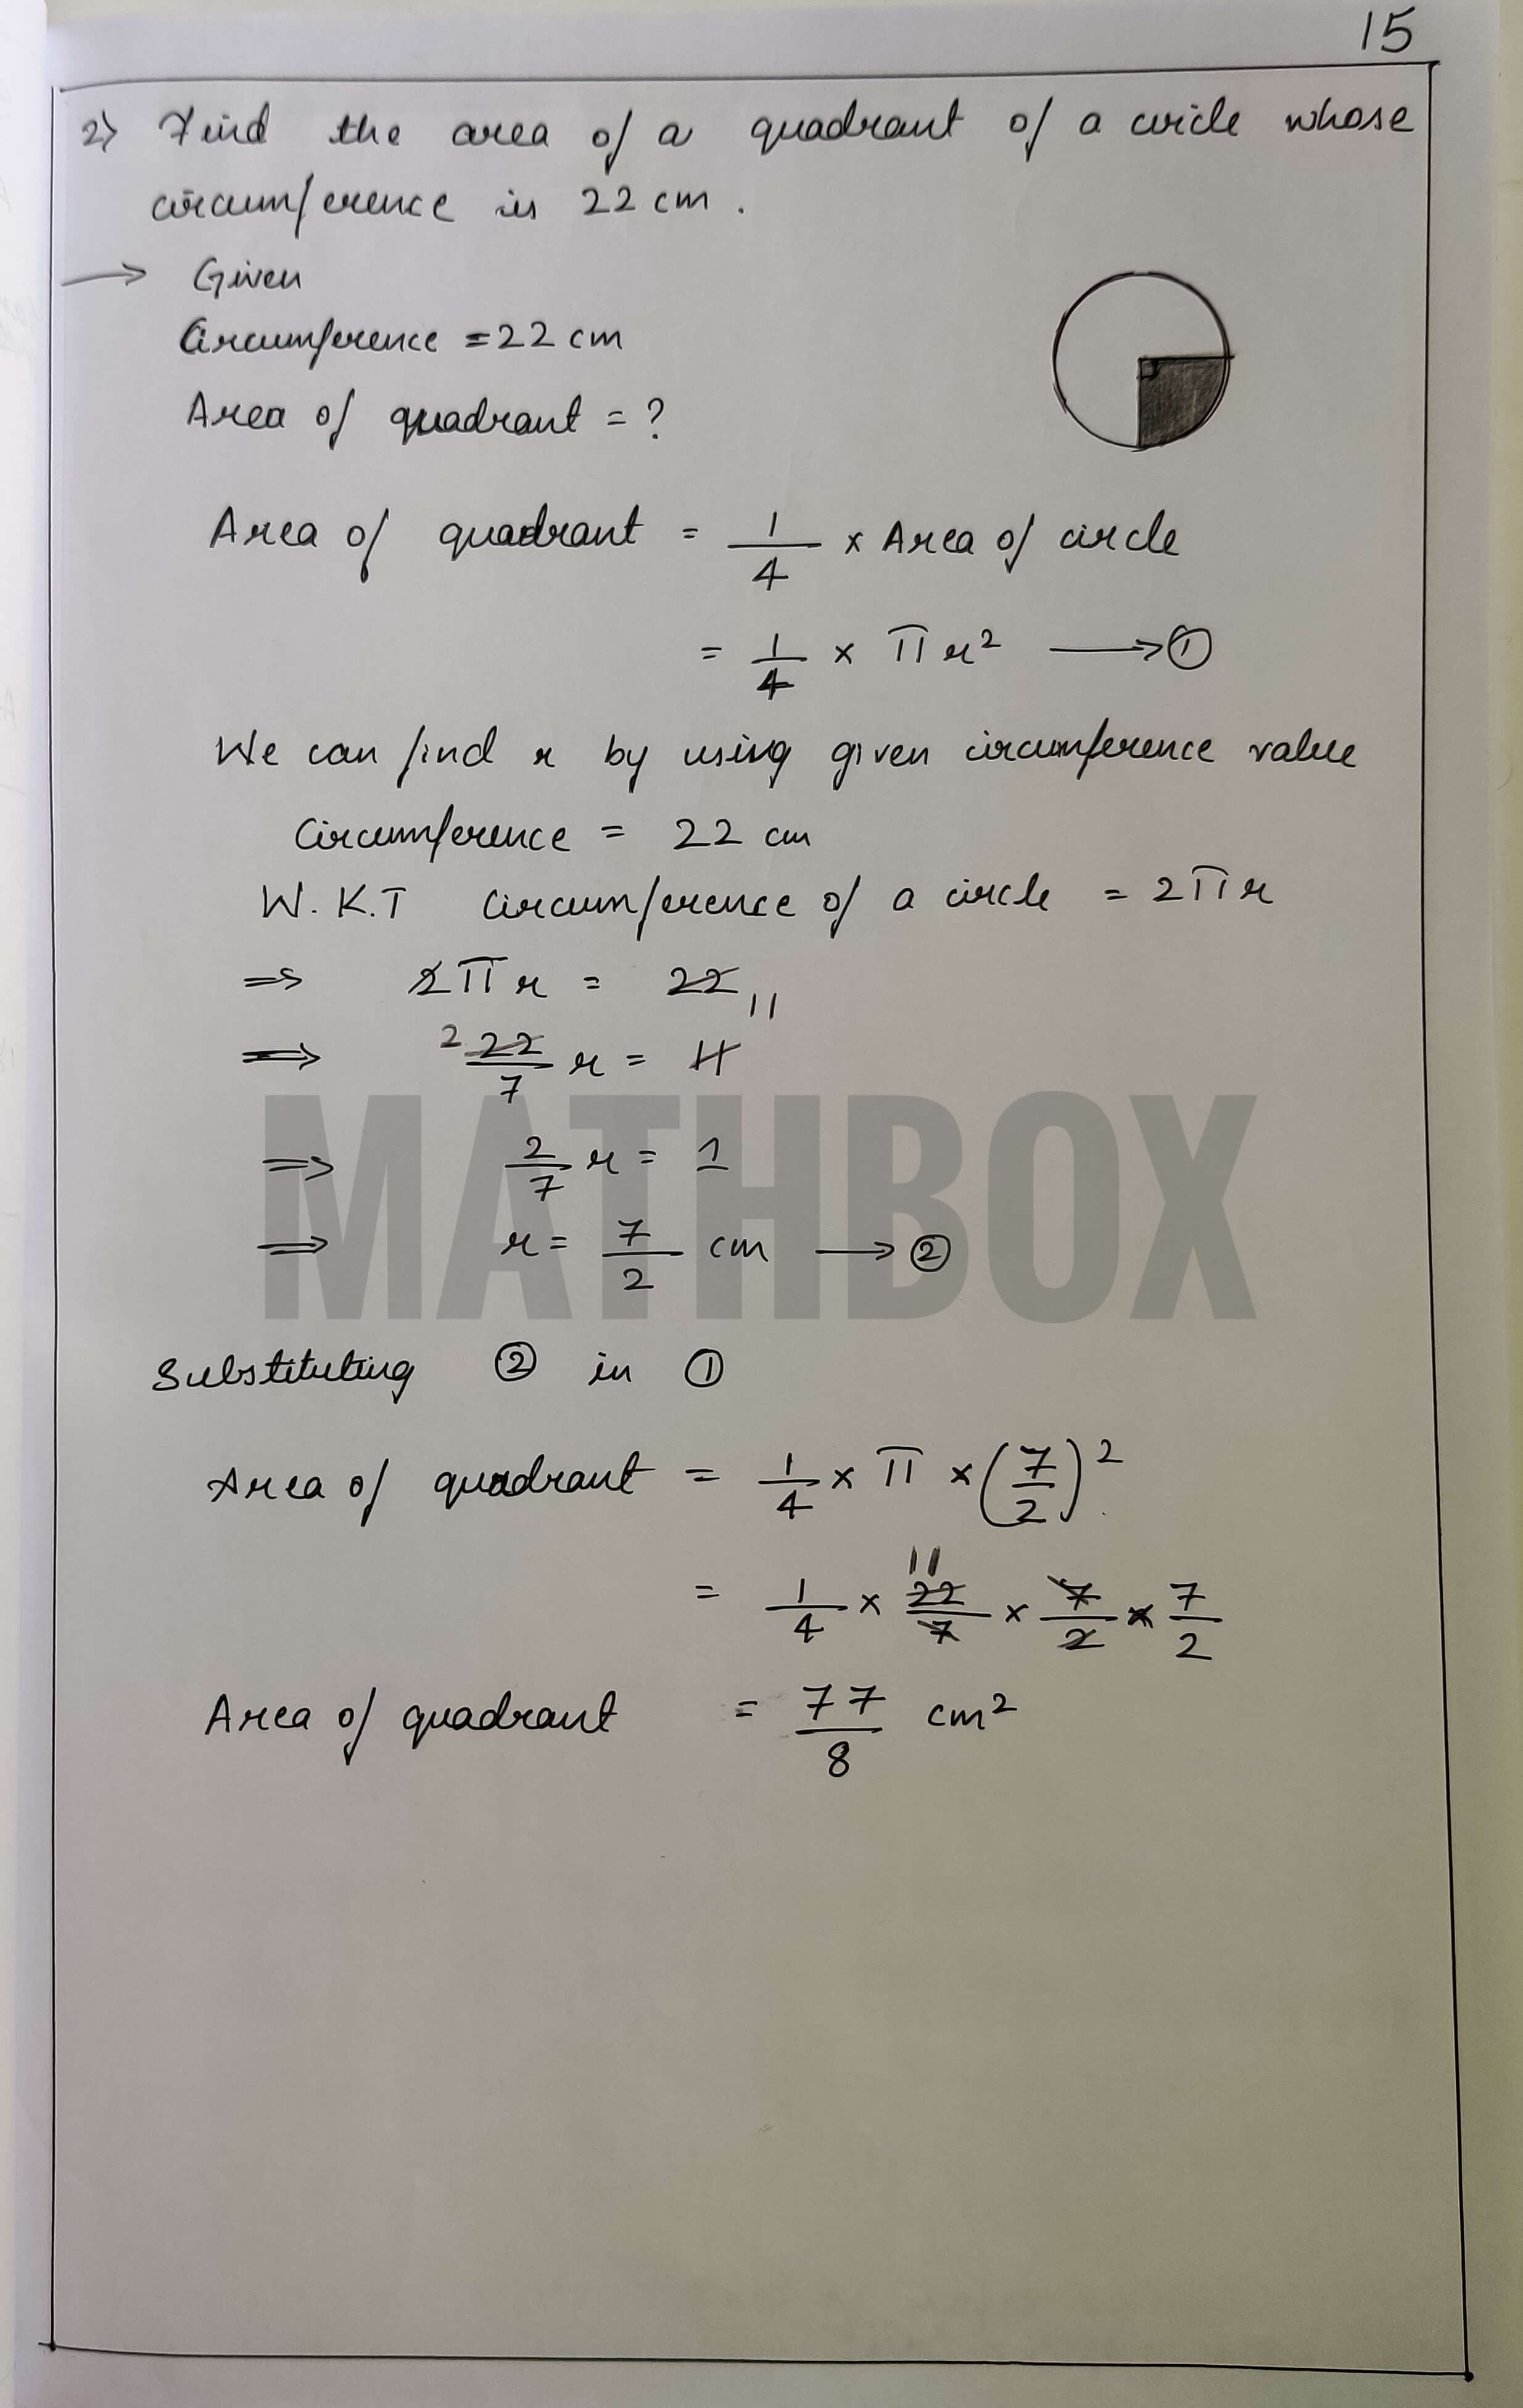 15
2) Find the area of a quadrant of a circle whose
circumference is 22 cm.
→ Given
Circumference = 22 cm
Area of quadrant = ?
Area of quadrant = 1/4 × Area of circle
= 1/4 × πr² → ①
We can find r by using given circumference value
Circumference = 22 cm
W.K.T circumference of a circle = 2πr
⇒ 2πr = 22 11
⇒ 2 22/7 r = 11
⇒ 2/7 r = 1
⇒ r = 7/2 cm → ②
MATHBOX
Substituting ② in ①
Area of quadrant = 1/4 × π × (7/2)²
11
= 1/4 × 22/7 × 7/2 × 7/2
Area of quadrant = 77/8 cm²